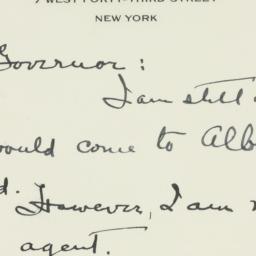 7 WEST FORTY-THIRD STREET
NEW YORK
Governor:
I am still
would come to Alb
d. However, I am
agent.